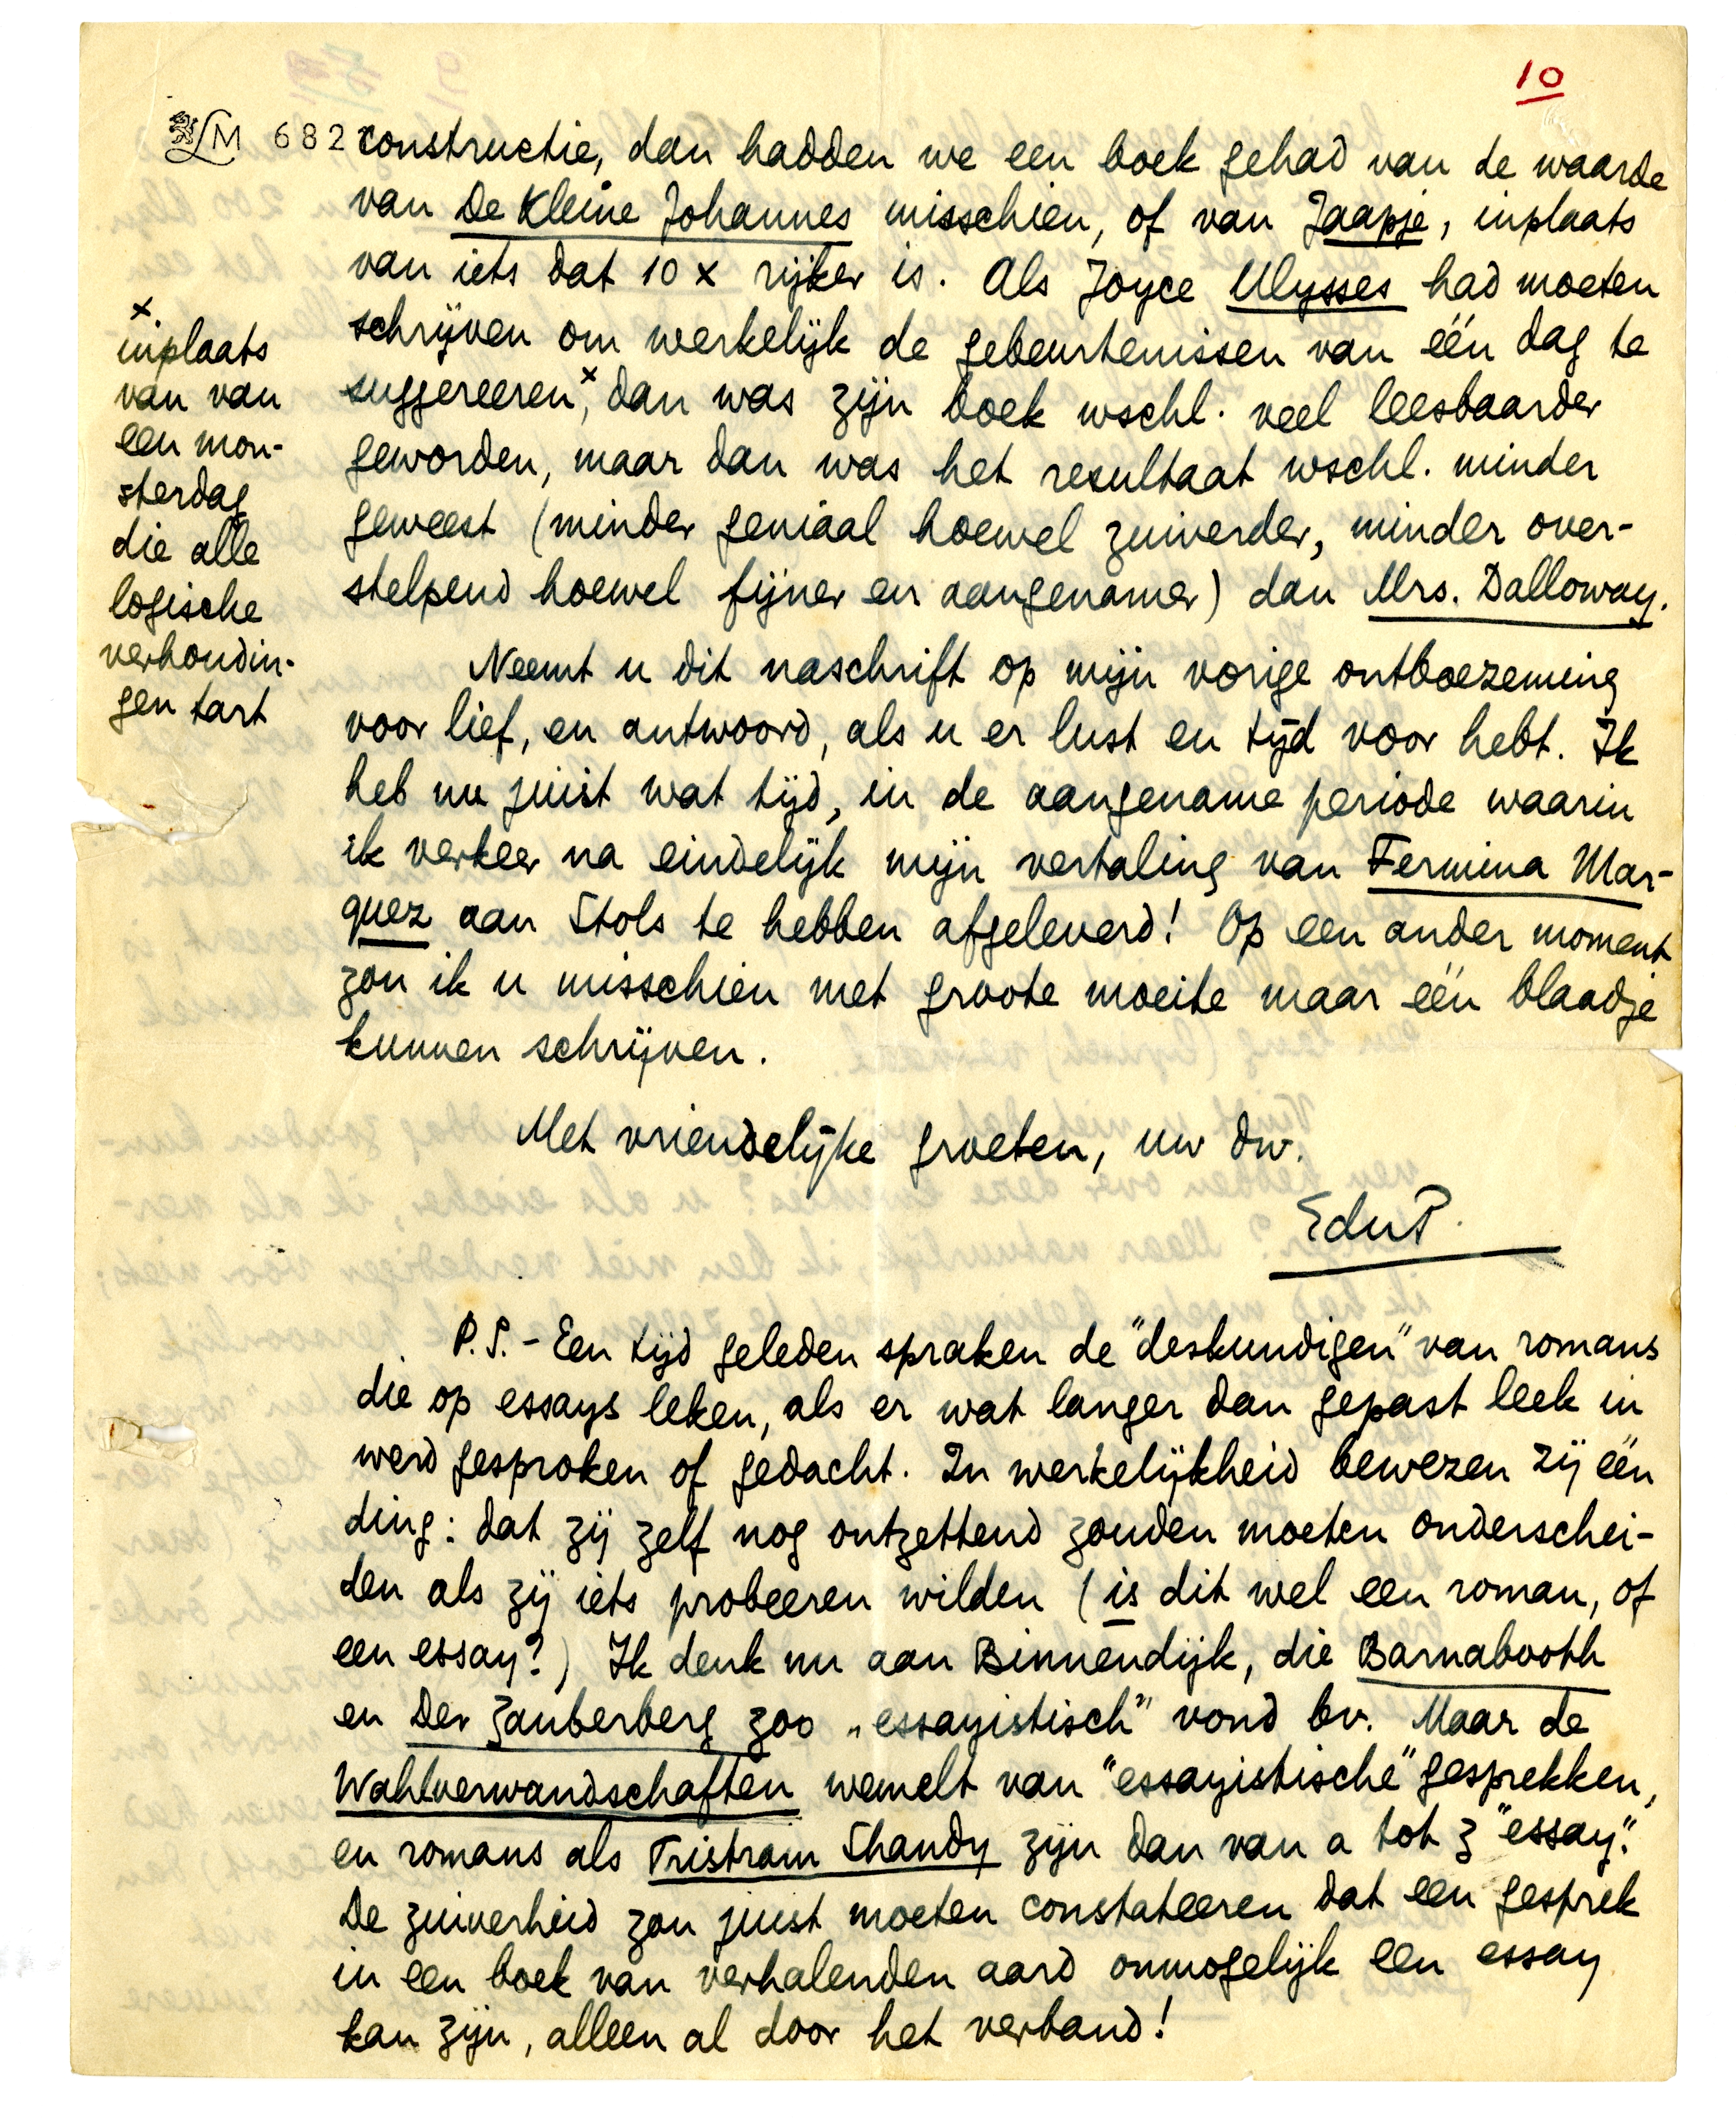 10
LM 682
constructie, dan hadden we een boek gehad van de waarde
van De Kleine Johannes misschien, of van Jaapje, inplaats
van iets dat 10 x rijker is. Als Joyce Ulysses had moeten
schrijven om werkelijk de gebeurtenissen van één dag te
suggereeren,x dan was zijn boek wschl. veel leesbaarder
geworden, maar dan was het resultaat wschl. minder
geweest (minder geniaal hoewel zuiverder, minder over-
stelpend hoewel fijner en aangenamer) dan Mrs. Dalloway.
x
inplaats
van van
een mon-
sterdag
die alle
logische
verhoudin-
gen tart
Neemt u dit naschrift op mijn vorige ontboezeming
voor lief, en antwoord, als u er lust en tijd voor hebt. Ik
heb nu juist wat tijd, in de aangename periode waarin
ik verkeer na eindelijk mijn vertaling van Fermina Mar-
quez aan Stols te hebben afgeleverd! Op een ander moment
zou ik u misschien met groote moeite maar één blaadje
kunnen schrijven.
Met vriendelijke groeten, uw dw.
EduP.
P.S. - Een tijd geleden spraken de "deskundigen" van romans
die op essays leken, als er wat langer dan gepast leek in
werd gesproken of gedacht. In werkelijkheid bewezen zij één
ding: dat zij zelf nog ontzettend zouden moeten onderschei-
den als zij iets probeeren wilden (is dit wel een roman, of
een essay?) Ik denk nu aan Binnendijk, die Barnabooth
en Der Zauberberg zoo „essayistisch" vond bv. Maar de
Wahlverwandschaften wemelt van "essayistische" gesprekken,
en romans als Tristram Shandy zijn dan van a tot z "essay".
De zuiverheid zou juist moeten constateeren dat een gesprek
in een boek van verhalenden aard onmogelijk een essay
kan zijn, alleen al door het verband!